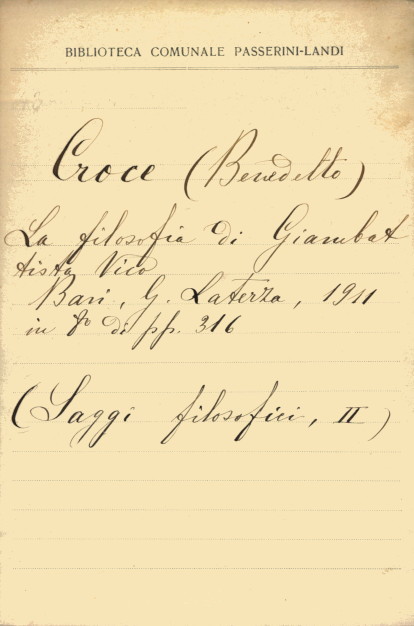 BIBLIOTECA COMUNALE PASSERINI-LANDI
Croce (Benedetto)
La filosofia di Giambat
tista Vico
Bari, G. Laterza, 1911
in 8º di pp. 316
(Saggi filosofici, II)